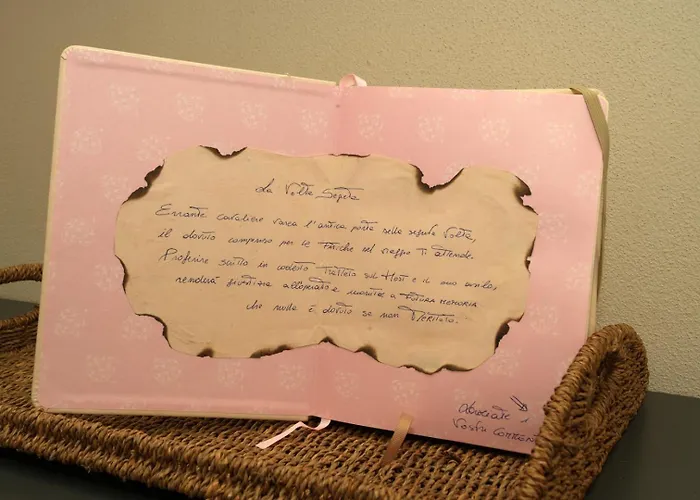 La Volta Segreta
Errante cavaliere varca l'antica porta della segreta Volta,
il dovuto compenso per le fatiche del viaggio Ti attende.
Proferire scritto in codesto sul Host e il suo asilo,
renderà giustizia all'ospitato e monito a FUTURA MEMORIA
che nulla è dovuto se non Meritato.
i
Vostri Commenti